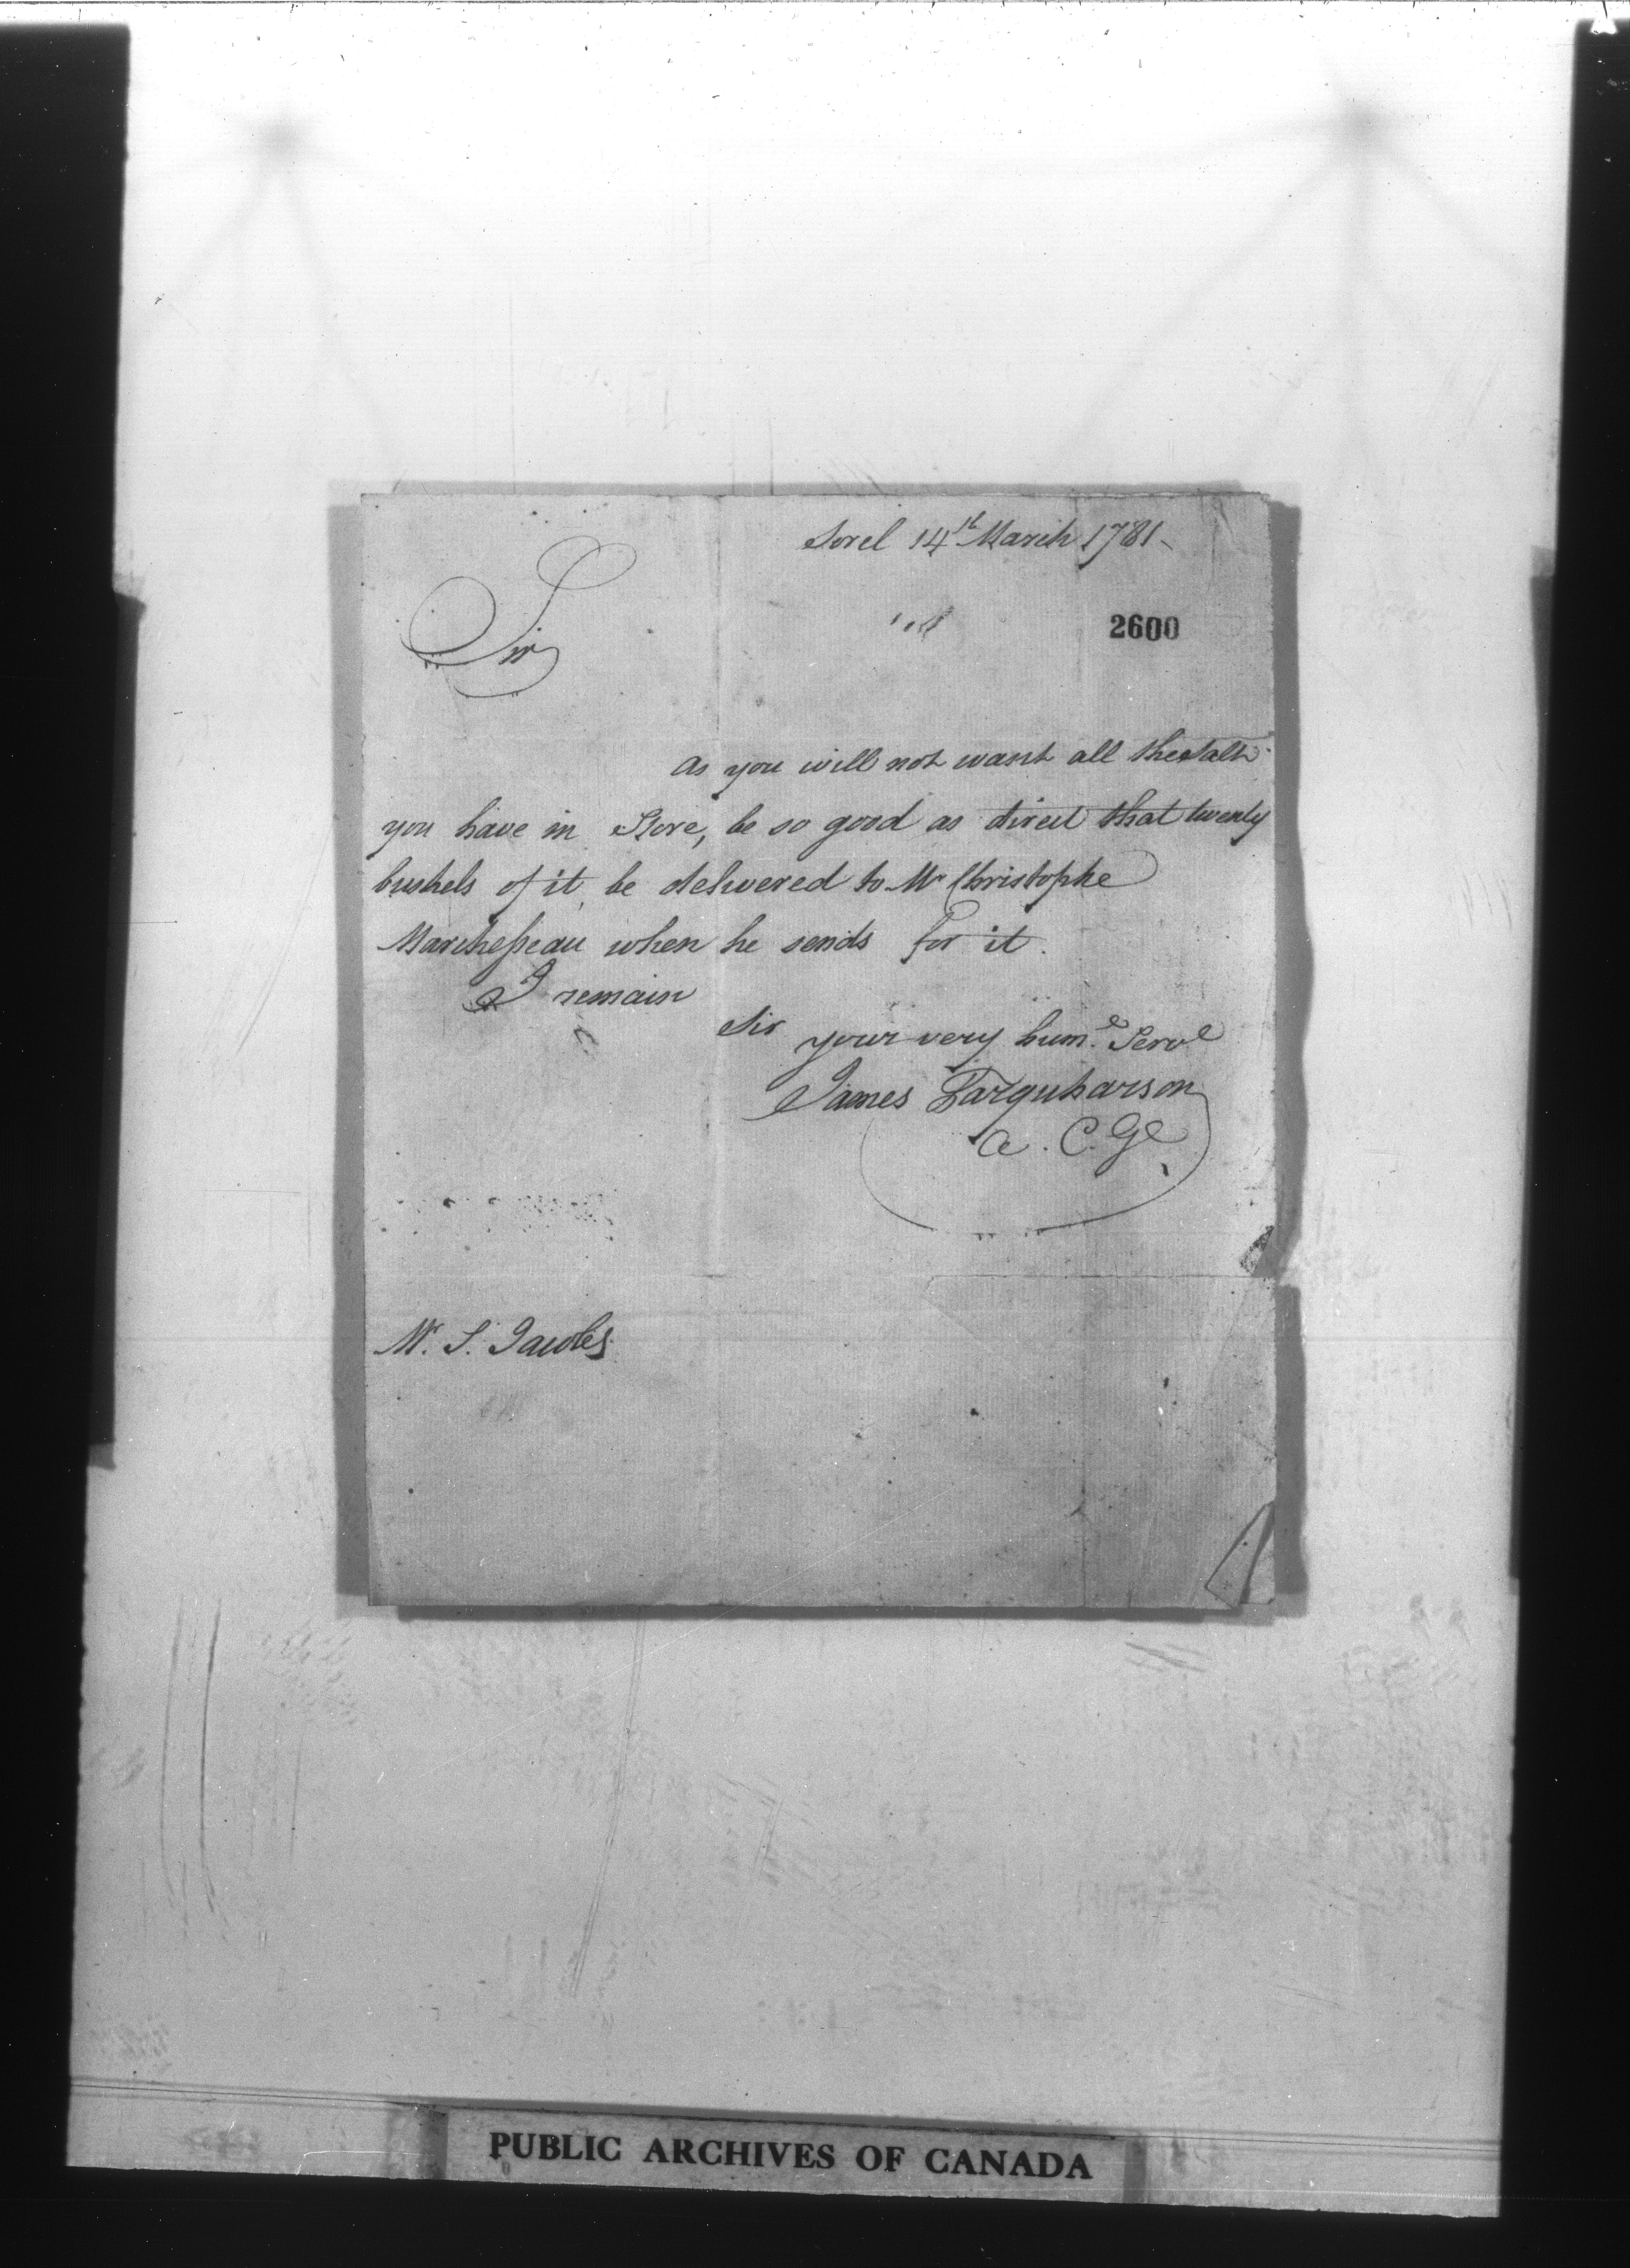 Sorel 14th March 1781
2600
Sir
As you will not want all the Salt
you have in Store, be so good as direct that twenty
bushels of it, be delivered to Mr Christophe
Marchesseau when he sends for it.
I remain
Sir your very hume. Servt
James Farquharson
A. C. Gl
Mr. S. Jacobs
PUBLIC ARCHIVES OF CANADA